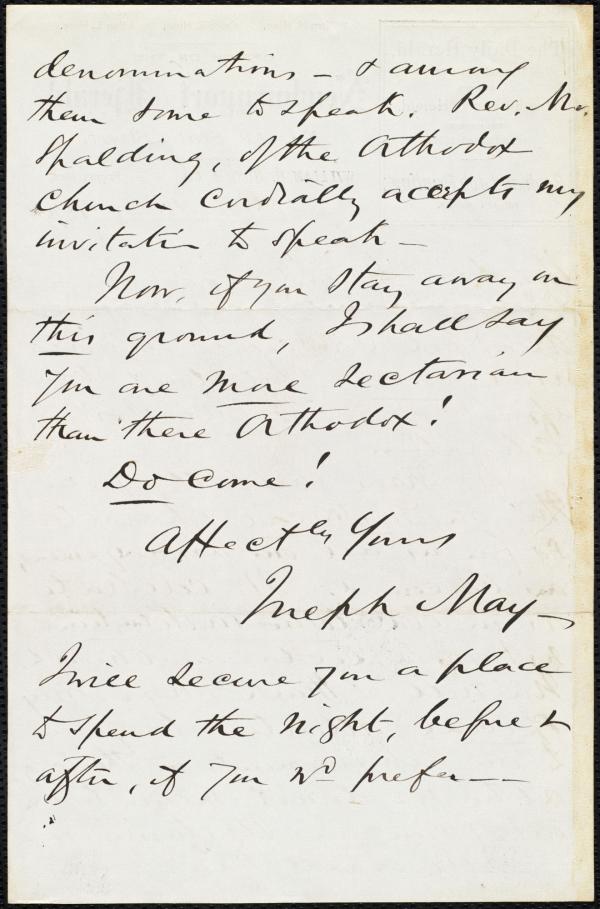 denominations - & among
them some to speak. Rev. Mr.
Spalding, of the Orthodox
church cordially accepts my
invitation to speak -
Now, if you stay away on
this ground, I shall say
you are more sectarian
than these Orthodox!
Do come!
Affectly Yours
Joseph May -
I will secure you a place
to spend the night, before &
after, if you wd prefer --